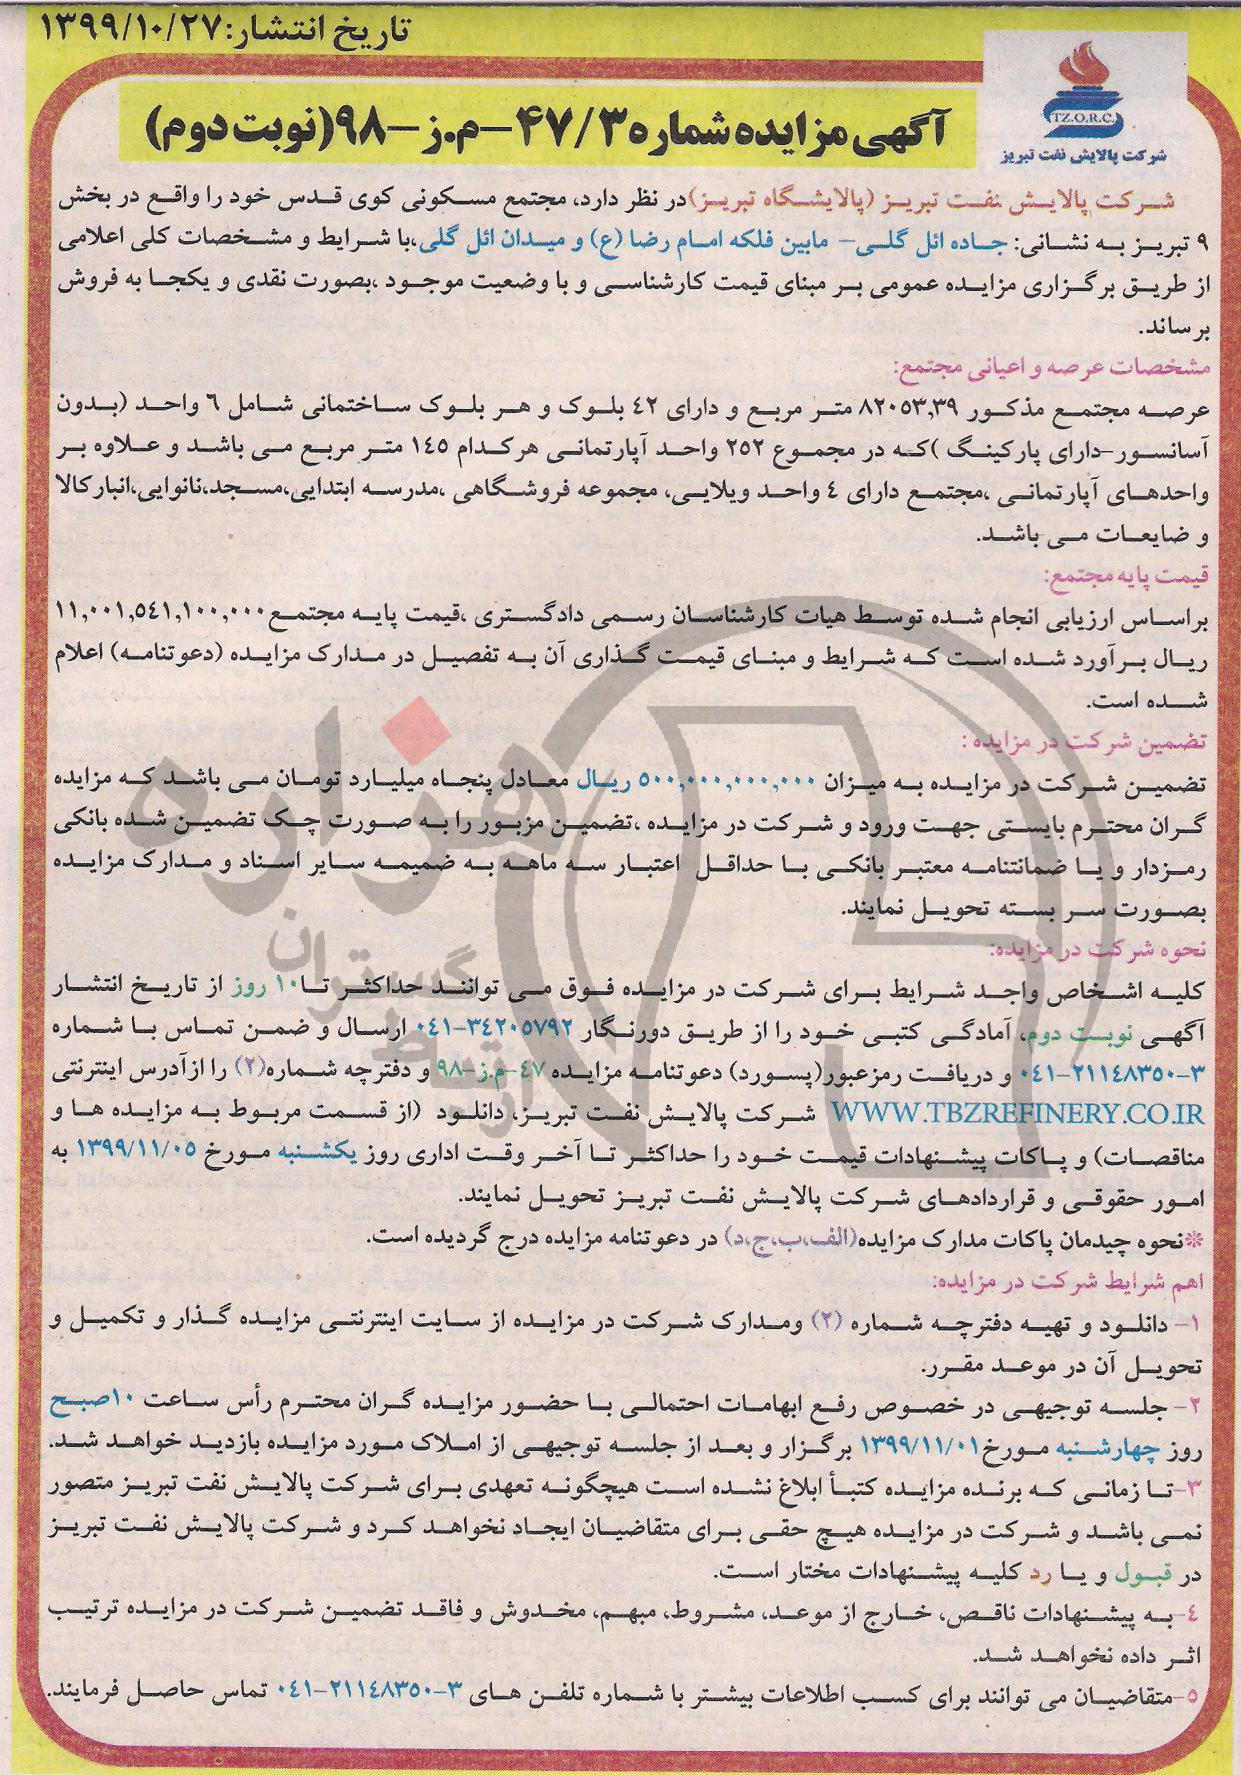 تاریخ انتشار:۱۳۹۹/۱۰/۲۷
T.Z.O.R.C.
شرکت پالایش نفت تبریز
آگهی مزایده شماره ۴۷/۳-م.ز-۹۸(نوبت دوم)
شرکت پالایش نفت تبریز (پالایشگاه تبریز)در نظر دارد، مجتمع مسکونی کوی قدس خود را واقع در بخش
۹ تبریز به نشانی: جاده ائل گلی- مابین فلکه امام رضا (ع) و میدان ائل گلی،با شرایط و مشخصات کلی اعلامی
از طریق برگزاری مزایده عمومی بر مبنای قیمت کارشناسی و با وضعیت موجود ،بصورت نقدی و یکجا به فروش
برساند.
مشخصات عرصه و اعیانی مجتمع:
عرصه مجتمع مذکور ۸۲۰۵۳,۳۹ متر مربع و دارای ۴۲ بلوک و هر بلوک ساختمانی شامل ۶ واحد (بدون
آسانسور-دارای پارکینگ )که در مجموع ۲۵۲ واحد آپارتمانی هرکدام ۱۴۵ متر مربع می باشد و علاوه بر
واحدهای آپارتمانی ،مجتمع دارای ۴ واحد ویلایی، مجموعه فروشگاهی ،مدرسه ابتدایی،مسجد،نانوایی،انبارکالا
و ضایعات می باشد.
قیمت پایه مجتمع:
براساس ارزیابی انجام شده توسط هیات کارشناسان رسمی دادگستری ،قیمت پایه مجتمع ۱۱,۰۰۱,۵۴۱,۱۰۰,۰۰۰
ریال برآورد شده است که شرایط و مبنای قیمت گذاری آن به تفصیل در مدارک مزایده (دعوتنامه) اعلام
شده است.
تضمین شرکت در مزایده :
تضمین شرکت در مزایده به میزان ۵۰۰,۰۰۰,۰۰۰,۰۰۰ ریال معادل پنجاه میلیارد تومان می باشد که مزایده
گران محترم بایستی جهت ورود و شرکت در مزایده ،تضمین مزبور را به صورت چک تضمین شده بانکی
رمزدار و یا ضمانتنامه معتبر بانکی با حداقل اعتبار سه ماهه به ضمیمه سایر اسناد و مدارک مزایده
بصورت سر بسته تحویل نمایند.
نحوه شرکت در مزایده:
کلیه اشخاص واجد شرایط برای شرکت در مزایده فوق می توانند حداکثر تا۱۰ روز از تاریخ انتشار
آگهی نوبت دوم، آمادگی کتبی خود را از طریق دورنگار ۳۴۲۰۵۷۹۲-۰۴۱ ارسال و ضمن تماس با شماره
۳-۲۱۱۴۸۳۵۰-۰۴۱ و دریافت رمزعبور(پسورد) دعوتنامه مزایده ۴۷-م.ز-۹۸ و دفترچه شماره(۲) را ازآدرس اینترنتی
WWW.TBZREFINERY.CO.IR شرکت پالایش نفت تبریز، دانلود (از قسمت مربوط به مزایده ها و
مناقصات) و پاکات پیشنهادات قیمت خود را حداکثر تا آخر وقت اداری روز یکشنبه مورخ ۱۳۹۹/۱۱/۰۵ به
امور حقوقی و قراردادهای شرکت پالایش نفت تبریز تحویل نمایند.
*نحوه چیدمان پاکات مدارک مزایده(الف،ب،ج،د) در دعوتنامه مزایده درج گردیده است.
اهم شرایط شرکت در مزایده:
۱- دانلود و تهیه دفترچه شماره (۲) ومدارک شرکت در مزایده از سایت اینترنتی مزایده گذار و تکمیل و
تحویل آن در موعد مقرر.
۲- جلسه توجیهی در خصوص رفع ابهامات احتمالی با حضور مزایده گران محترم رأس ساعت ۱۰صبح
روز چهارشنبه مورخ۱۳۹۹/۱۱/۰۱ برگزار و بعد از جلسه توجیهی از املاک مورد مزایده بازدید خواهد شد.
۳-تا زمانی که برنده مزایده کتبأ ابلاغ نشده است هیچگونه تعهدی برای شرکت پالایش نفت تبریز متصور
نمی باشد و شرکت در مزایده هیچ حقی برای متقاضیان ایجاد نخواهد کرد و شرکت پالایش نفت تبریز
در قبول و یا رد کلیه پیشنهادات مختار است.
۴-به پیشنهادات ناقص، خارج از موعد، مشروط، مبهم، مخدوش و فاقد تضمین شرکت در مزایده ترتیب
اثر داده نخواهد شد.
۵-متقاضیان می توانند برای کسب اطلاعات بیشتر با شماره تلفن های ۳-۲۱۱۴۸۳۵۰-۰۴۱ تماس حاصل فرمایند.
هزاره
گستران
ارتباط